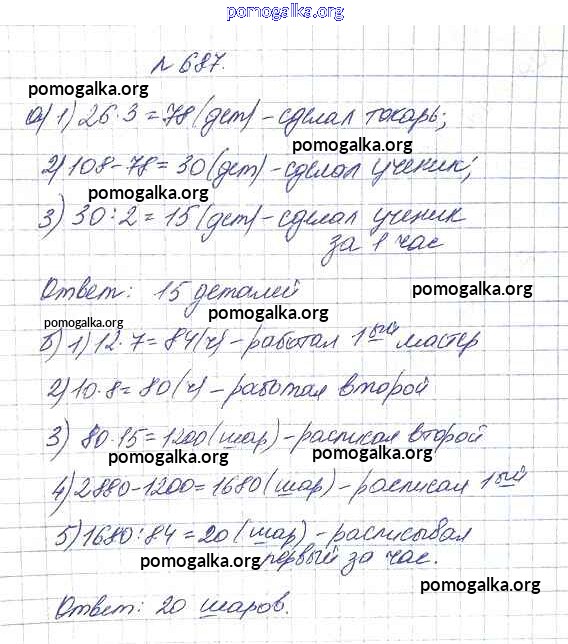 pomogalka.org
№ 687.
pomogalka.org
а) 1) 26·3=78 (дет) – сделал токарь;
pomogalka.org
2) 108–78=30 (дет) – сделал ученик;
pomogalka.org
3) 30:2=15 (дет) – сделал ученик
за 1 час
Ответ: 15 деталей
pomogalka.org pomogalka.org
pomogalka.org
б) 1) 12·7=84(ч) – работал 1ый мастер
2) 10·8=80 (ч) – работал второй
3) 80·15=1200 (шар) – расписал второй
pomogalka.org pomogalka.org
4) 2880–1200=1680 (шар) – расписал 1ый
5) 1680:84=20 (шар) – расписывал
pomogalka.org первый за час.
pomogalka.org
Ответ: 20 шаров.